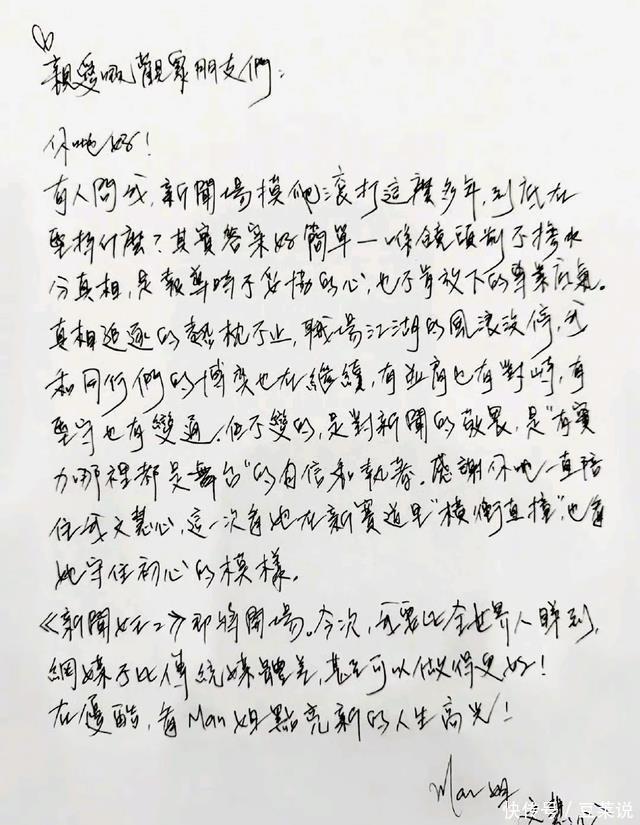 親愛嘅觀眾朋友們：
你哋好！
有人問我，新聞場摸爬滾打這麼多年，到底在
堅持什麼？其實答案好簡單—係鏡頭前不摻水
分真相，是報導時不妥協的心，也不肯放下的專業底氣。
真相追逐的熱枕不止，職場江湖的風浪沒停，我
和同行們的博奕也在繼續，有並肩也有對峙，有
堅守也有變通。但不變的，是對新聞的敬畏，是"有實
力哪裡都是舞台"的自信和執着。感謝你哋一直陪
住我文慧心，這一次看她在新賽道里"橫衝直撞"，也看
她守住初心的模樣。
《新聞女王2》即將開場。今次，我要比全世界人睇到，
網媒不比傳統媒體差，甚至可以做得更好！
在優酷，看Man姐點亮新的人生高光！
Man姐
文慧心
快传号/豆菜说